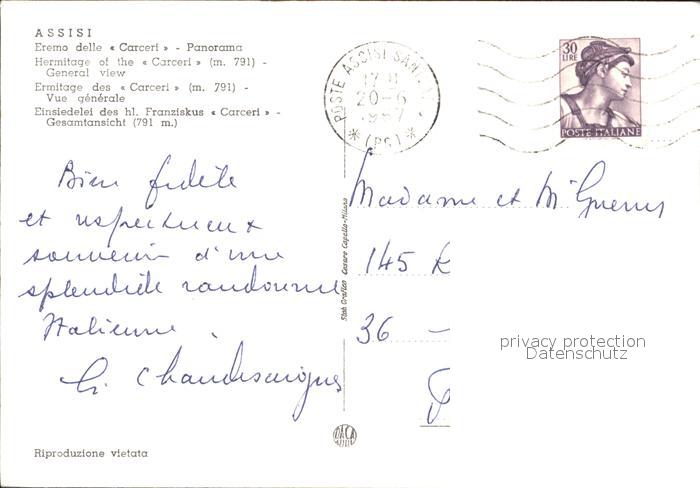 ASSISI
Eremo delle « Carceri » - Panorama
Hermitage of the « Carceri » (m. 791) -
General view
Ermitage des « Carceri » (m. 791) -
Vue générale
Einsiedelei des hl. Franziskus « Carceri » -
Gesamtansicht (791 m.)
POSTE ASSISI
20-6
(PG)
30
LIRE
POSTE ITALIANE
Bien fidèle
et respectueux
souvenir d'une
splendide randonnée
Italienne.
Chaudesaigues
Madame et Mr
145 R
36 -
Stab. Grafico Cesare Capello-Milano
privacy protection
Datenschutz
DACA
Riproduzione vietata